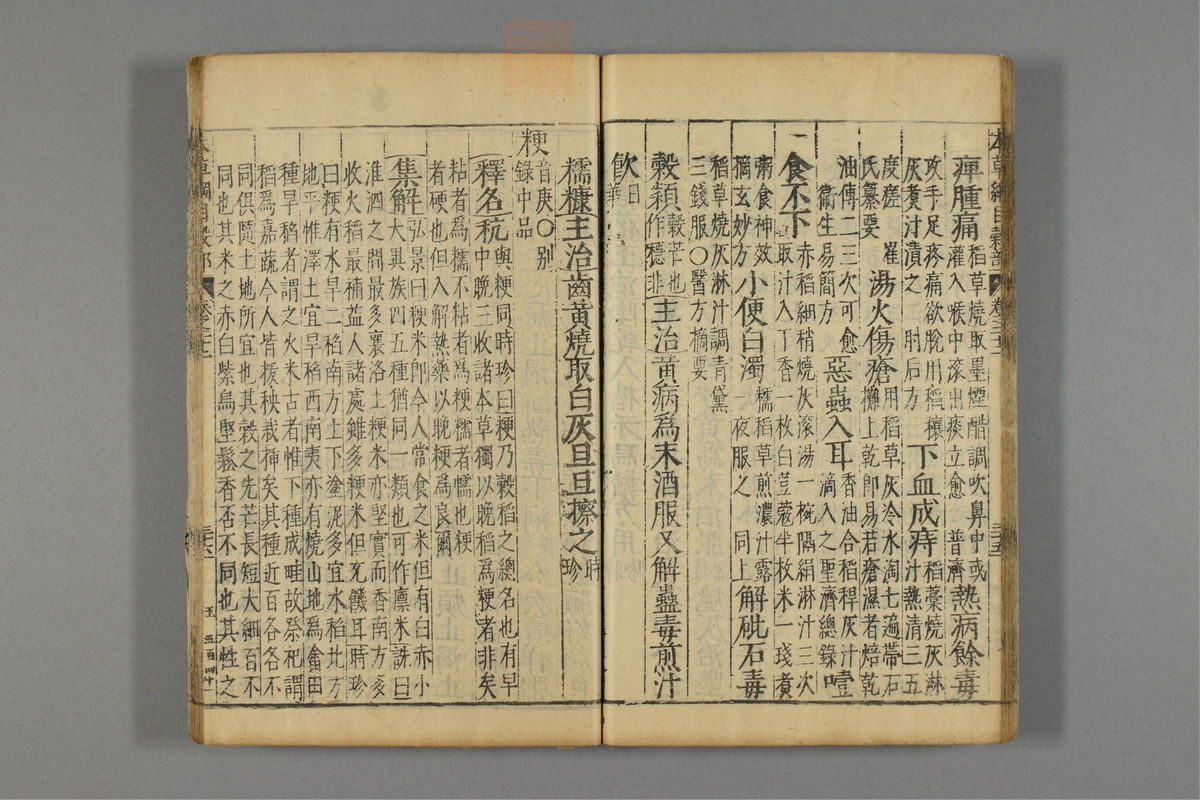 本草綱目穀部 卷二十二 三十五
痺腫痛稻草燒取墨煙醋調吹鼻中或灌入喉中滾出痰立愈 普濟熱病餘毒
攻手足疼痛欲脫用稻穰灰煑汁漬之 肘后方下血成痔稻藁燒灰淋汁熱清三五
度瘥 崔氏纂要湯火傷瘡用稻草灰冷水淘七遍帶石攤上乾即易若瘡濕者焙乾
油傅二三次可愈 衞生易簡方惡蟲入耳香油合稻稈灰汁滴入之聖濟總錄噎
食不下赤稻細稍燒灰滾湯一椀隔絹淋汁三次取汁入丁香一枚白荳蔻半枚米一琖煑
粥食神效 摘玄妙方小便白濁糯稻草煎濃汁露一夜服之 同上解砒石毒
稻草燒灰淋汁調青黛三錢服○醫方摘要
穀穎穀芒也作穏非主治黃病爲末酒服又解蠱毒煎汁
飲日華
糯糠主治齒黃燒取白灰旦旦擦之時珍
粳音庚○別錄中品
釋名秔與粳同時珍曰粳乃穀稻之總名也有早中晚三收諸本草獨以晚稻爲粳者非矣
粘者爲糯不粘者爲粳糯者懦也粳者硬也但入解熱藥以晚粳爲良爾
集解弘景曰粳米即今人常食之米但有白赤小大異族四五種猶同一類也可作廪米詵曰
淮泗之間最多襄洛土粳米亦堅實而香南方多收火稻最補益人諸處雖多粳米但充饑耳時珍
曰粳有水旱二稻南方土下塗泥多宜水稻北方地平惟澤土宜旱稻西南夷亦有燒山地爲畬田
種旱稻者謂之火米古者惟下種成畦故祭祀謂稻爲嘉蔬今人皆拔秧栽挿矣其種近百各各不
同俱隨土地所宜也其穀之先芒長短大細百不同也其米之赤白紫烏堅鬆香否不同也其性之
本草綱目穀部 卷二十二 三十六